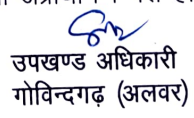 उपखण्ड अधिकारी
गोविन्दगढ़ (अलवर)